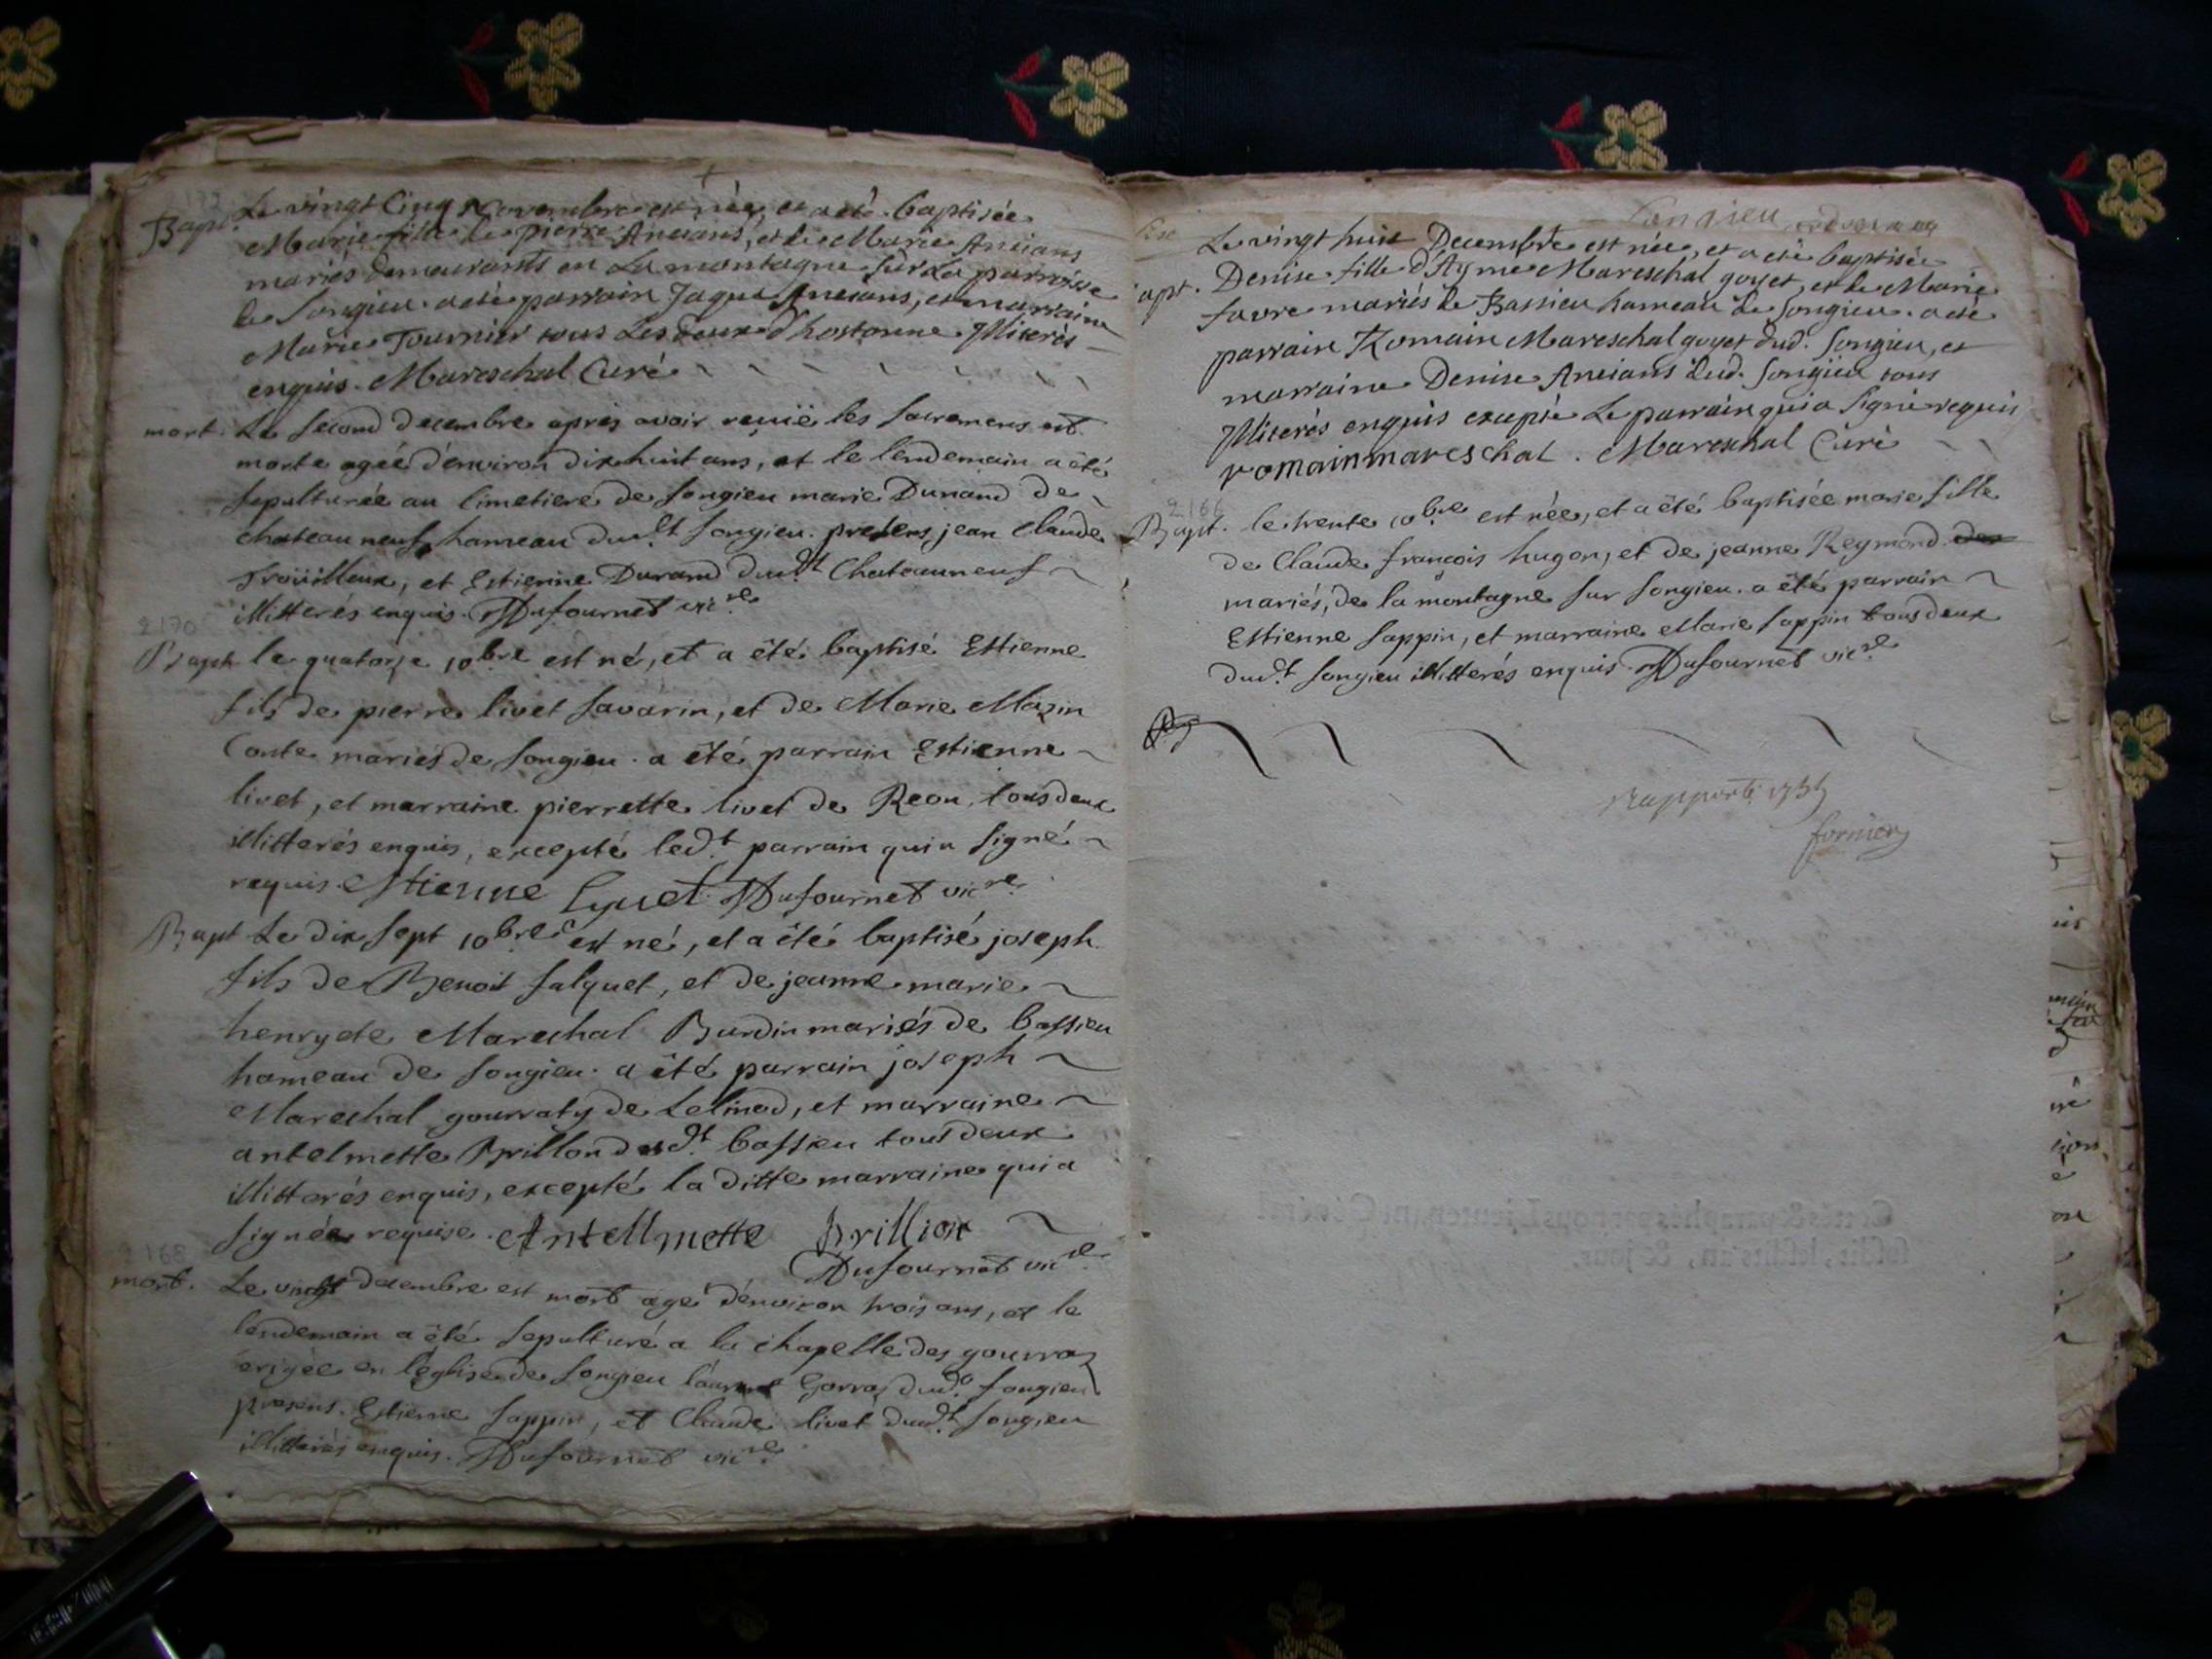 Bapt. Le vingt Cinq Novembre est née, et a eté baptisée
Marie fille de pierre Ancians, et de Marie Ancians
mariés demeurants en La montagne sur La parroisse
de Songieu. a eté parrain Jaque Ancians, et marraine
Marie Tournier tous Les deux d'hostonne. Illiterés
enquis. Mareschal Curé
mort. Le second decembre apres avoir recuë les sacremens est
morte agée d'environ dix huit ans, et le lendemain a êté
sepulturée au cimetiere de songieu marie Dunand de
chateau neuf hameau dud.t songieu. presens jean claude
Troüilleux, et Estienne Dunand dud.t Chateauneuf
illitterés enquis. Dufournet vic.re
2170
Bapt le quatorze 10bre est né, et a êté baptisé Estienne
fils de pierre livet savarin, et de Marie Mazin
Conte mariés de songieu. a êté parrain Estienne
livet, et marraine pierrette livet de Reou, tous deux
illitterés enquis, excepté led.t parrain qui a signé
requis. Estienne Lyuet. Dufournet vic.re
Bapt Le dix sept 10bre est né, et a êté baptisé joseph
fils de Benoit falquet, et de jeanne marie
henryete Mareschal Burdin mariés de bassieu
hameau de songieu. a êté parrain joseph
Mareschal gourraty de Lelinod, et marraine
antelmette Brillon dud.t bassieu tous deux
illitterés enquis, excepté la ditte marraine qui a
signée requise. Antellmette Brillion
Dufournet vic.re
2168
mort. Le vingt decembre est mort agé d'environ trois ans, et le
lendemain a êté sepulturé a la chapelle des gourraz
erigée en l'eglise de songieu laurent Gorraz dud.t songieu
presens. Estienne sappin, et Claude livet dud.t songieu
illitterés enquis. Dufournet vic.re
Songieu
Bapt. Le vingt huit Decembre est née, et a eté baptisée
Denise fille d'Ayme Mareschal goyet, et de Marie
favre mariés de Bassieu hameau de Songieu. a eté
parrain Romain Mareschal goyet dud. Songieu, et
marraine Denise Ancians dud. Songieu tous
Illiterés enquis excepté Le parrain qui a signé requis
romain mareschal. Mareschal Curé
2166
Bapt. le trente 10bre est née, et a êté baptisée marie fille
de Claude francois hugon, et de jeanne Reymond
mariés, de la montagne sur songieu. a êté parrain
Estienne sappin, et marraine Marie sappin tous deux
dud.t songieu illitterés enquis. Dufournet vic.re
Rapporté
fornier
Cottés & paraphés par nous Lieutenant Général
susdit, lesdits an, & jour.